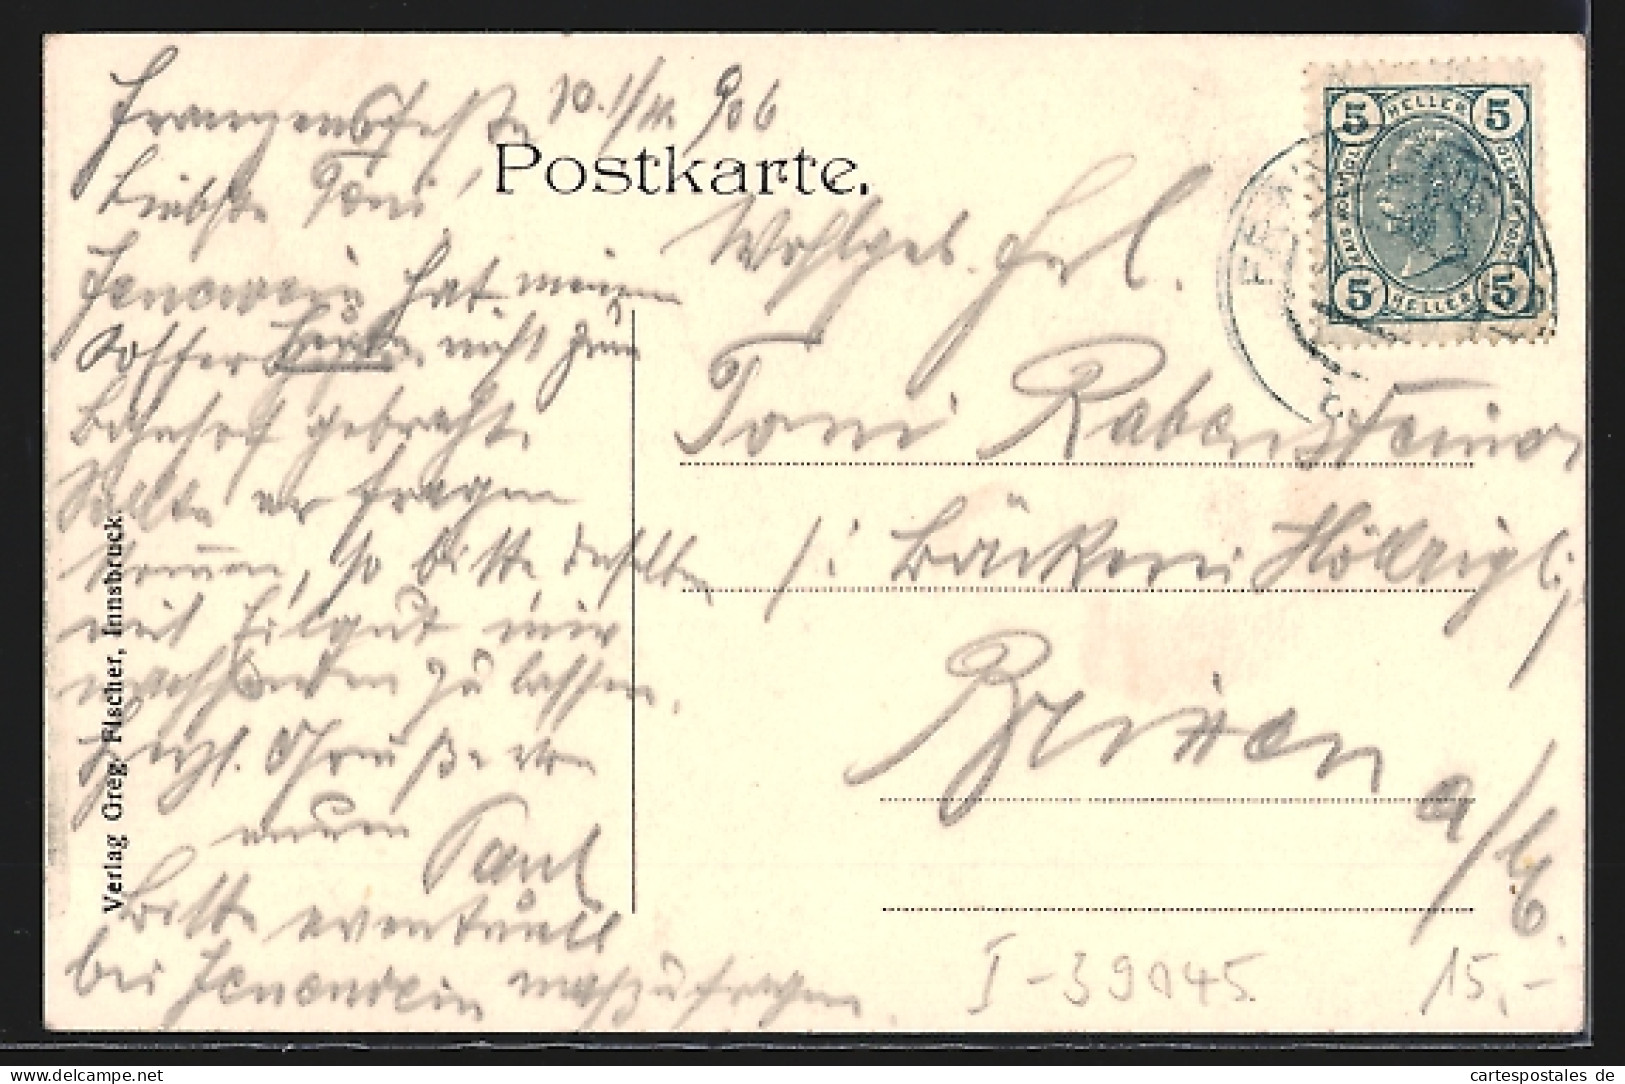 Franzensfeste, 10.1/II. 906
Postkarte.
Liebste Toni!
Jenewein hat meinen
Koffer heute nicht zum
Bahnhof gebracht.
Sollte er fragen
kommen, so bitte denselben
mit Eilgut mir
nachsenden zu lassen.
Herzl. Grüße von
Paul
Bitte eventuell
bei Jenewein nachzufragen
Wohlgeb. Frl.
Toni Rabensteiner
Bäckerei
Brixen
a/E.
Verlag Greg. Fischer, Innsbruck.
5 HELLER 5
5 HELLER 5
I-39045.
15,-
cartespostales de